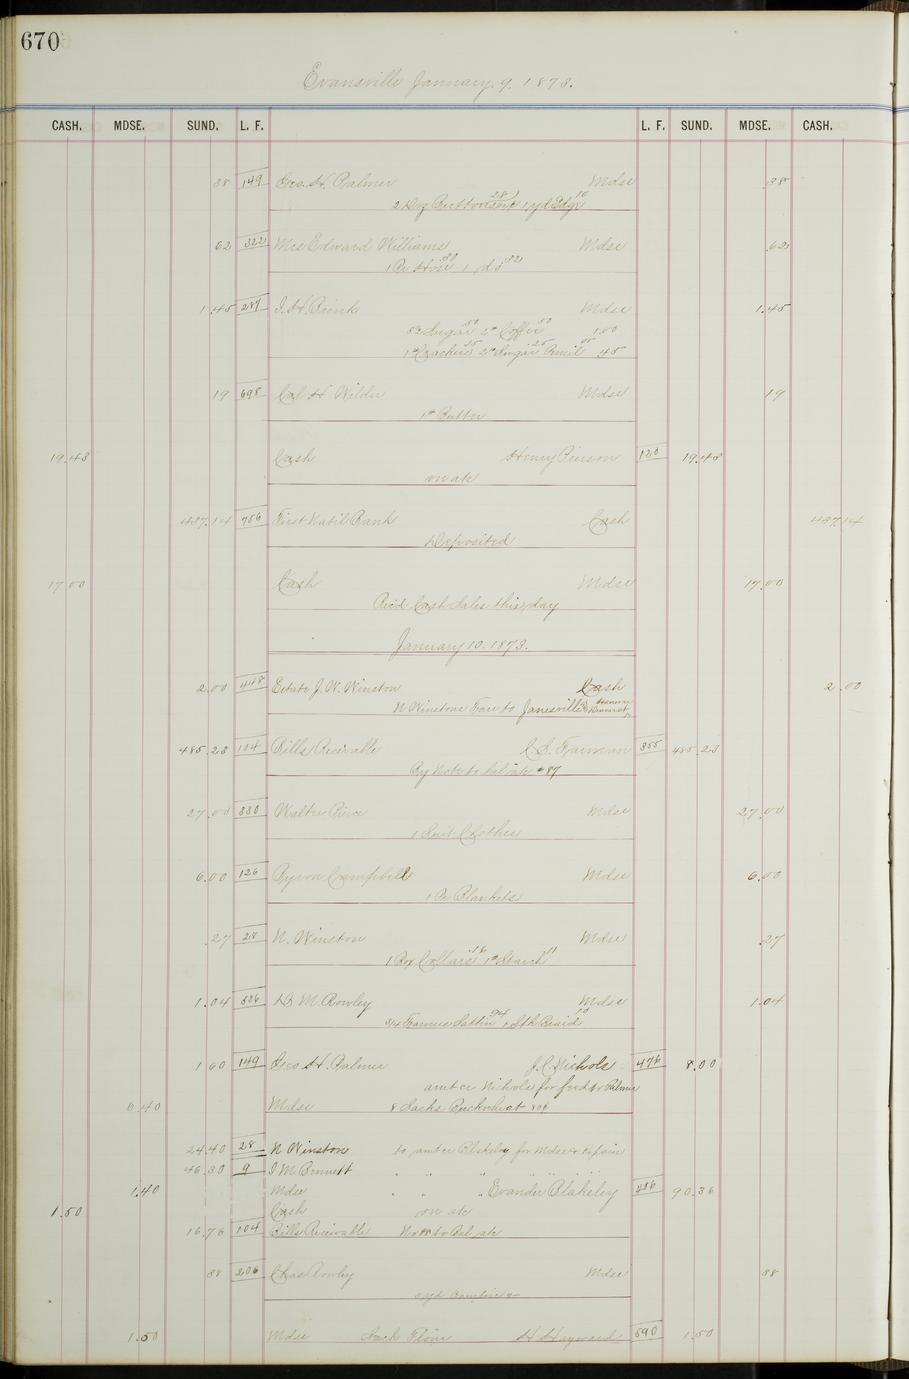 670
Evansville January 9. 1873.
CASH. MDSE. SUND. L. F. L. F. SUND. MDSE. CASH.
38 149 Geo. H. Palmer Mdse 38
2 Doz Buttons 28 1 yd Edge 10
62 322 Mrs Edward Williams Mdse .62
1 Pr Hose 30 1 do 32
1.45 287 Mdse 1.45
Sugar 50 Coffee 50 1.00
Crackers Sugar 25 45
19 698 Cal H Wilder Mdse 19
1# Butter
19.43 Cash Henry Pierson 120 19.43
on a/c
437.14 756 First Natil Bank Cash 437.14
Deposited
17.00 Cash Mdse 17.00
Rec'd Cash Sales this day
January 10. 1873.
2.00 448 Estate J. W. Winston Cash 2.00
N Winstons Fare to Janesville
485.23 104 Bills Receivable 355 485.23
By Note to bal a/c #87
27.00 330 Walter Pierce Mdse 27.00
1 Suit Clothes
6.00 126 Byron Campbell Mdse 6.00
1 Pr Blankets
.27 28 N. Winston Mdse .27
1 Box Collars .16 1# Starch 11
1.04 326 D M Rowley Mdse 1.04
3/4 Sattin 94 Braid 10
1 60 149 Geo H. Palmer J. C. Nichols 476 8.00
amt cr Nichols for feed to Palmer
6.40 Mdse 8 Sacks Buckwheat 80¢
24.40 28 N Winston to amt cr Blakeley for Mdse & Repairs
46.30 9 J M Bennett " " " " " "
1.40 Mdse " " " Evander Blakeley 486 90.36
1.50 Cash on a/c
16.76 104 Bills Receivable Note to Bal a/c
88 206 Chas Rowley Mdse 88
1.50 Mdse Sack Flour H Hayward 590 1.50